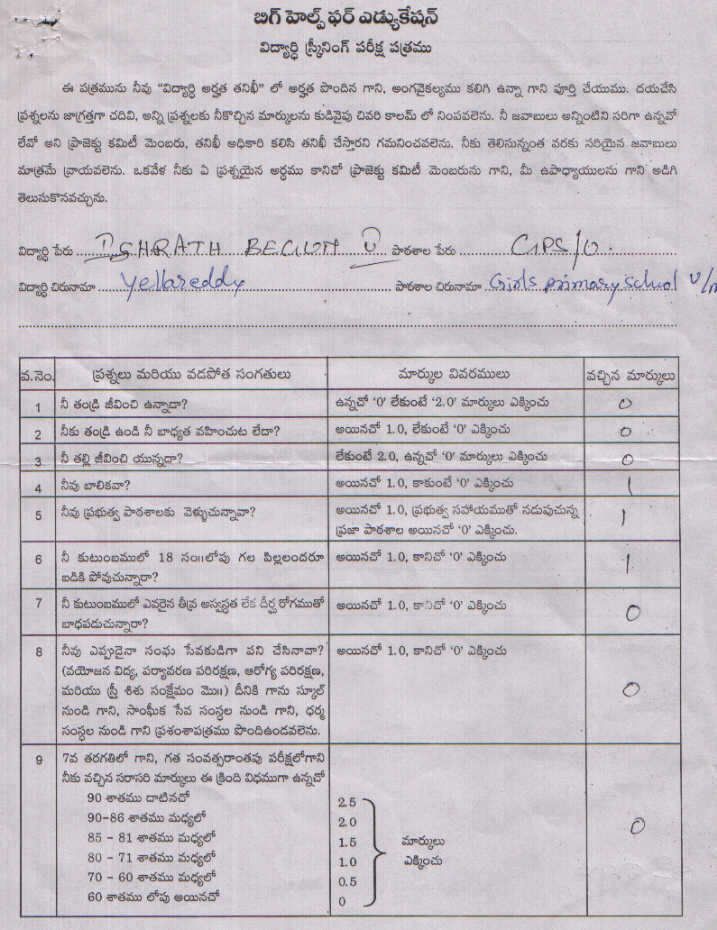 బిగ్ హెల్ప్ ఫర్ ఎడ్యుకేషన్
విద్యార్ధి స్క్రీనింగ్ పరీక్ష పత్రము
ఈ పత్రమును నీవు "విద్యార్ధి అర్హత తనిఖీ" లో అర్హత పొందిన గాని, అంగవైకల్యము కలిగి ఉన్నా గాని పూర్తి చేయుము. దయచేసి
ప్రశ్నలను జాగ్రత్తగా చదివి, అన్ని ప్రశ్నలకు నీకొచ్చిన మార్కులను కుడివైపు చివరి కాలమ్ లో నింపవలెను. నీ జవాబులు అన్నింటిని సరిగా ఉన్నవో
లేవో అని ప్రాజెక్టు కమిటీ మెంబరు, తనిఖీ అధికారి కలిసి తనిఖీ చేస్తారని గమనించవలెను. నీకు తెలిసున్నంత వరకు సరియైన జవాబులు
మాత్రమే వ్రాయవలెను. ఒకవేళ నీకు ఏ ప్రశ్నయైన అర్ధము కానిచో ప్రాజెక్టు కమిటీ మెంబరును గాని, మీ ఉపాధ్యాయులను గాని అడిగి
తెలుసుకొనవచ్చును.
విద్యార్ధి పేరు BEGUM పాఠశాల పేరు GPS/U.
విద్యార్ధి చిరునామా Yellareddy పాఠశాల చిరునామా Girls primary school U/m
వ.నెం. ప్రశ్నలు మరియు వడపోత సంగతులు మార్కుల వివరములు వచ్చిన మార్కులు
1 నీ తండ్రి జీవించి ఉన్నాడా? ఉన్నచో '0' లేకుంటే '2.0' మార్కులు ఎక్కించు 0
2 నీకు తండ్రి ఉండి నీ బాధ్యత వహించుట లేదా? అయినచో 1.0, లేకుంటే '0' ఎక్కించు 0
3 నీ తల్లి జీవించి యున్నదా? లేకుంటే 2.0, ఉన్నచో '0' మార్కులు ఎక్కించు 0
4 నీవు బాలికవా? అయినచో 1.0, కాకుంటే '0' ఎక్కించు 1
5 నీవు ప్రభుత్వ పాఠశాలకు వెళ్ళుచున్నావా? అయినచో 1.0, ప్రభుత్వ సహాయముతో నడుపుచున్న 1
ప్రజా పాఠశాల అయినచో '0' ఎక్కించు.
6 నీ కుటుంబములో 18 సం॥లోపు గల పిల్లలందరూ అయినచో 1.0, కానిచో '0' ఎక్కించు 1
బడికి పోవుచున్నారా?
7 నీ కుటుంబములో ఎవరైన తీవ్ర అస్వస్థత లేక దీర్ఘ రోగముతో అయినచో 1.0, కానిచో '0' ఎక్కించు 0
బాధపడుచున్నారా?
8 నీవు ఎప్పుడైనా సంఘ సేవకుడిగా పని చేసినావా? అయినచో 1.0, కానిచో '0' ఎక్కించు 0
(వయోజన విద్య, పర్యావరణ పరిరక్షణ, ఆరోగ్య పరిరక్షణ,
మరియు స్త్రీ శిశు సంక్షేమం మొ॥) దీనికి గాను స్కూల్
నుండి గాని, సాంఘీక సేవ సంస్థల నుండి గాని, ధర్మ
సంస్థల నుండి గాని ప్రశంశాపత్రము పొందిఉండవలెను.
9 7వ తరగతిలో గాని, గత సంవత్సరాంతపు పరీక్షలోగాని
నీకు వచ్చిన సరాసరి మార్కులు ఈ క్రింది విధముగా ఉన్నచో
90 శాతము దాటినచో 2.5
90-86 శాతము మధ్యలో 2.0 0
85 - 81 శాతము మధ్యలో 1.5 మార్కులు
80 - 71 శాతము మధ్యలో 1.0 ఎక్కించు
70 - 60 శాతము మధ్యలో 0.5
60 శాతము లోపు అయినచో 0